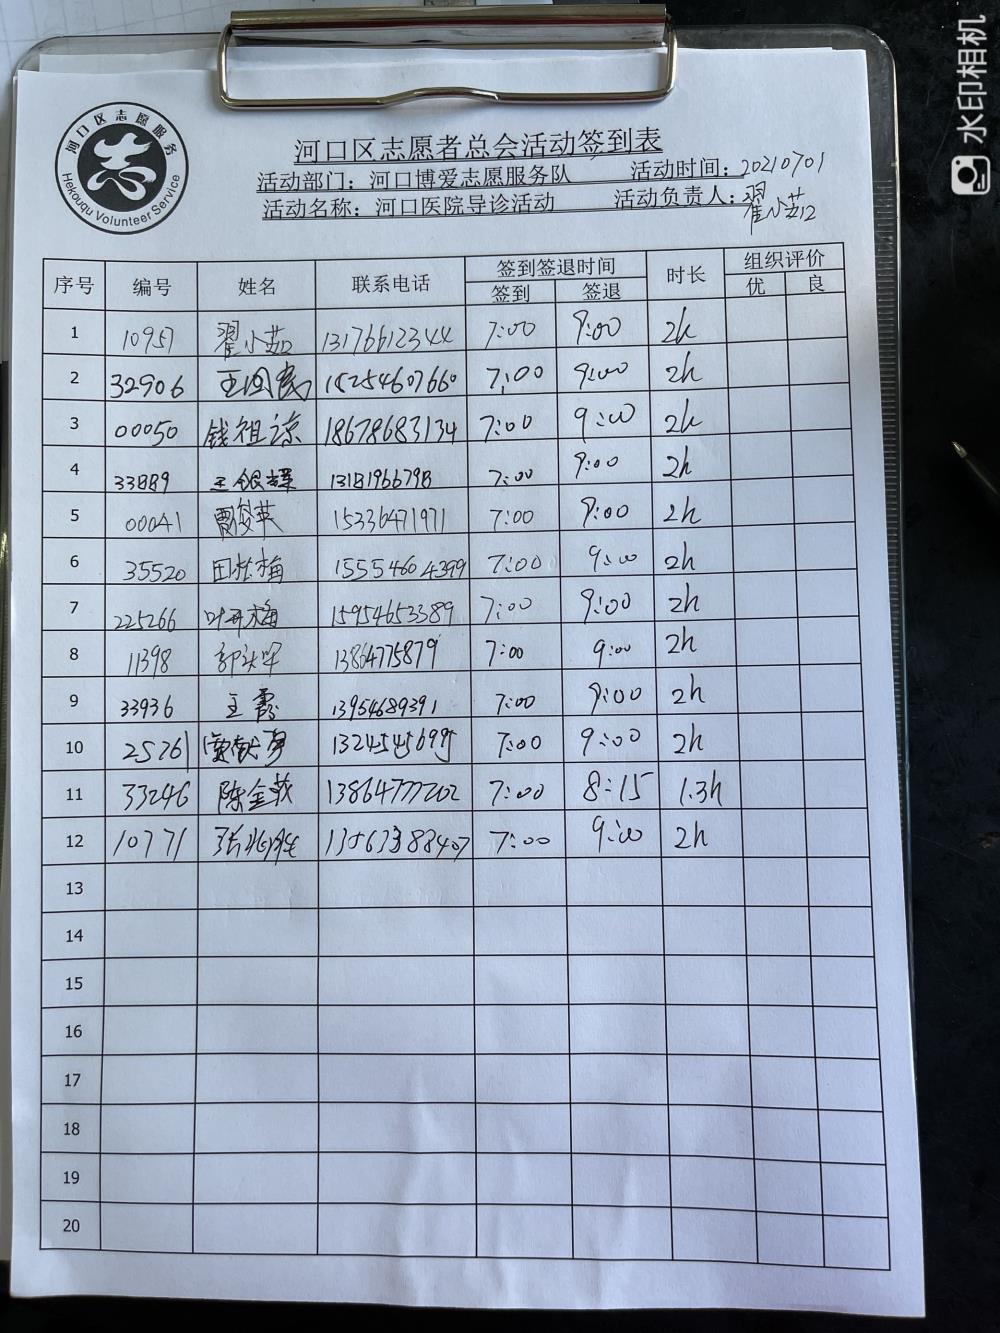 水印相机
河口区志愿服务
Hekouqu Volunteer Service
河口区志愿者总会活动签到表
活动部门：河口博爱志愿服务队 活动时间：20210701
活动名称：河口医院导诊活动 活动负责人：翟小茹
序号 编号 姓名 联系电话 签到签退时间 时长 组织评价
签到 签退 优 良
1 10951 翟小茹 13176612344 7:00 9:00 2h
2 32906 王国宾 15254607660 7:00 9:00 2h
3 00050 钱祖谅 18678683134 7:00 9:00 2h
4 33889 王银辉 7:00 9:00 2h
5 00041 贾俊英 15336471971 7:00 9:00 2h
6 35520 田桂梅 15554604399 7:00 9:00 2h
7 225266 叶再梅 15954653389 7:00 9:00 2h
8 11398 13864775879 7:00 9:00 2h
9 33936 王霞 13954689391 7:00 9:00 2h
10 25261 7:00 9:00 2h
11 33246 陈金敏 13864777202 7:00 8:15 1.3h
12 10771 7:00 9:00 2h
13
14
15
16
17
18
19
20